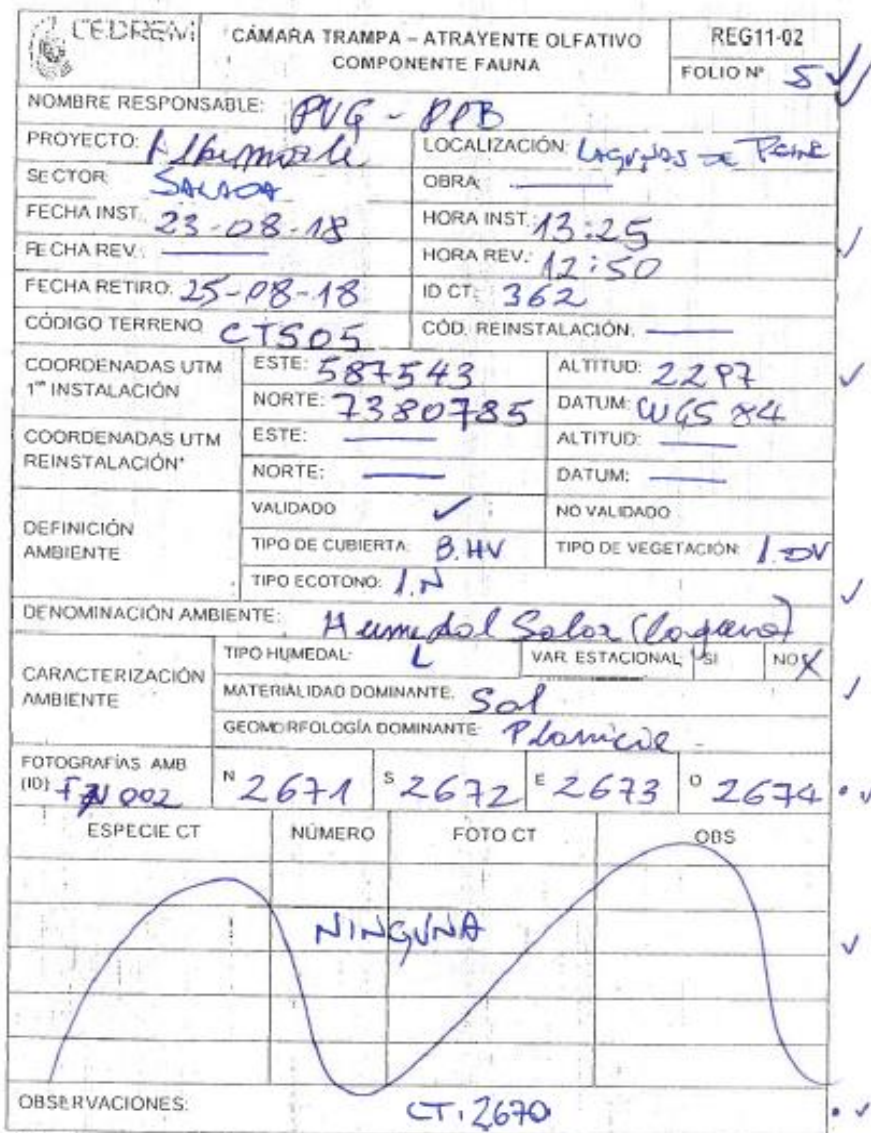 CEDREM
CÁMARA TRAMPA – ATRAYENTE OLFATIVO
COMPONENTE FAUNA
REG11-02
FOLIO Nº 5
NOMBRE RESPONSABLE: PVG - PPB
PROYECTO: Albemarle
LOCALIZACIÓN: LAGUNAS DE PEINE
SECTOR: SALADA
OBRA: ——
FECHA INST. 23-08-18
HORA INST. 13:25
FECHA REV.: ——
HORA REV.: 12:50
FECHA RETIRO: 25-08-18
ID CT: 362
CÓDIGO TERRENO CTS05
CÓD. REINSTALACIÓN: ——
COORDENADAS UTM
1ra INSTALACIÓN
ESTE: 587543
ALTITUD: 2297
NORTE: 7380785
DATUM: WGS 84
COORDENADAS UTM
REINSTALACIÓN*
ESTE: ——
ALTITUD: ——
NORTE: ——
DATUM: ——
DEFINICIÓN
AMBIENTE
VALIDADO ✓
NO VALIDADO
TIPO DE CUBIERTA: 8.HV
TIPO DE VEGETACIÓN: 1.DV
TIPO ECOTONO: 1.N
DENOMINACIÓN AMBIENTE: Humedal Salar (laguna)
CARACTERIZACIÓN
AMBIENTE
TIPO HUMEDAL: L
VAR. ESTACIONAL SI NO X
MATERIALIDAD DOMINANTE: Sal
GEOMORFOLOGÍA DOMINANTE: Planicie
FOTOGRAFÍAS AMB
(ID) 002
N 2671 S 2672 E 2673 O 2674
ESPECIE CT NÚMERO FOTO CT OBS
NINGUNA
OBSERVACIONES: CT: 2670